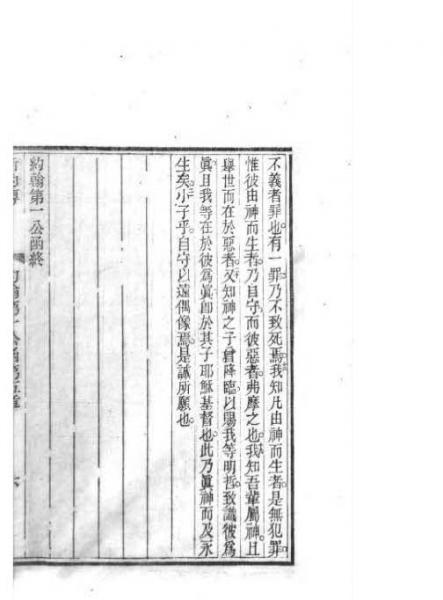 不義者罪也有一罪乃不致死焉我知凡由神而生者是無犯罪
惟彼由神而生者乃自守而彼惡者弗摩之也我知吾輩屬神且
舉世而在於惡者又知神之子曾降臨以賜我等明哲致識彼爲
眞且我等在於彼爲眞卽於其子耶穌基督也此乃眞神而及永
生矣小子乎自守以遠偶像焉是誠所願也
約翰第一公函終